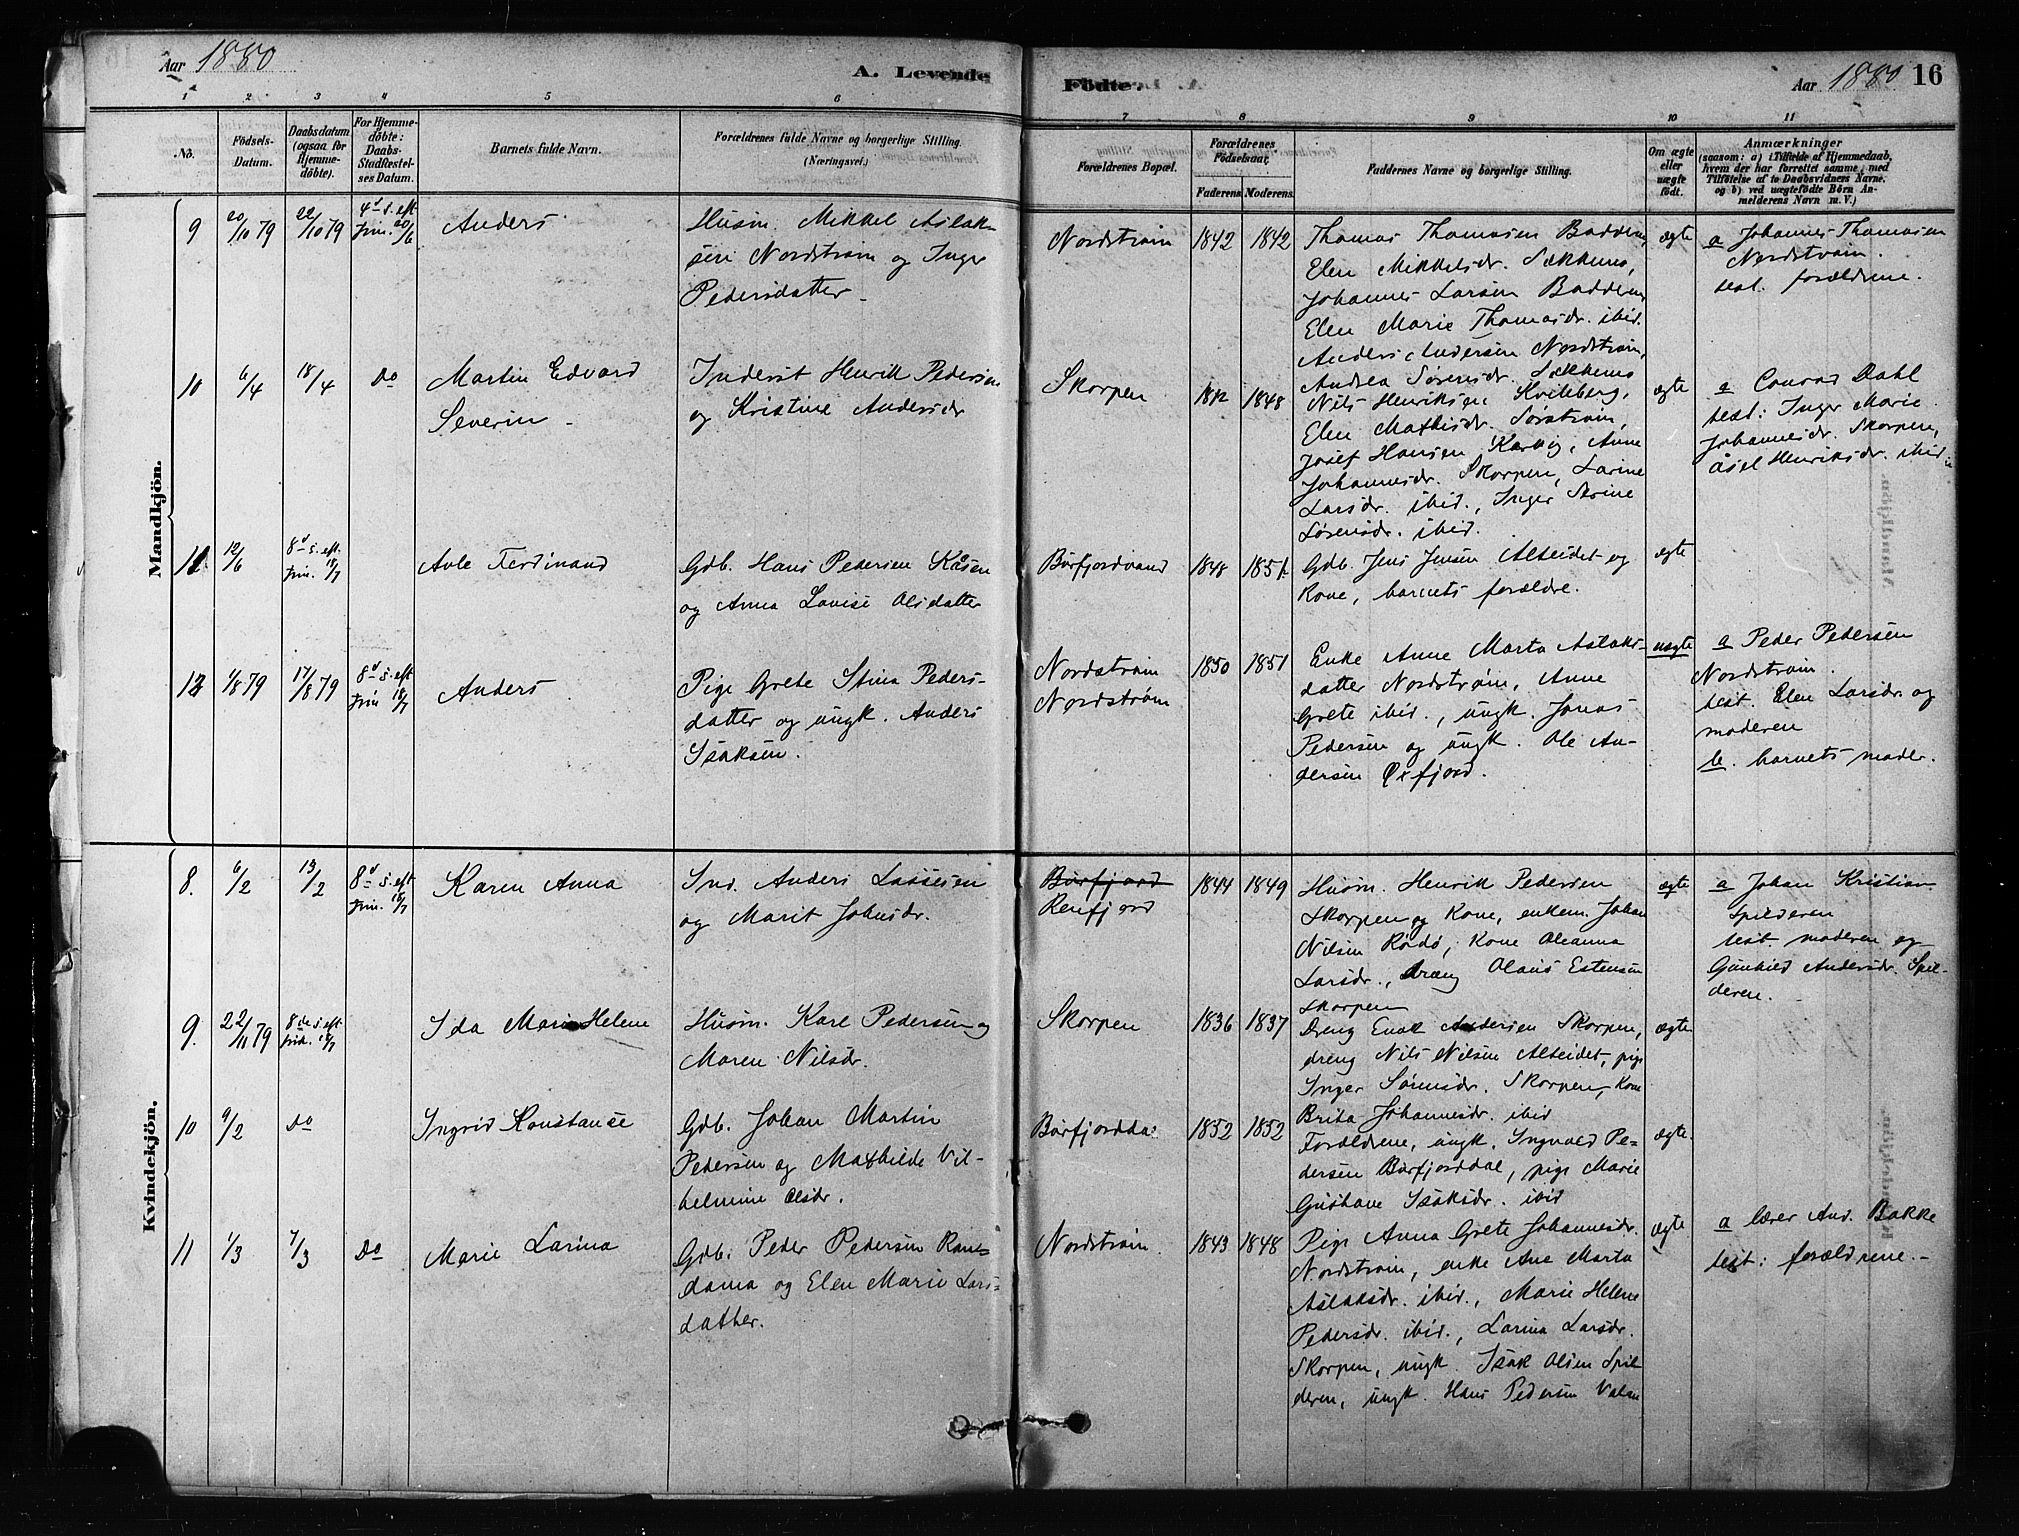 Aar 1880
A. Levende
Födte.
Aar 1880
16
1 2 3 4 5 6 7 8 9 10 11
No.
Födsels-
Datum.
Daabsdatum
(ogsaa for
Hjemme-
döbte).
For Hjemme-
döbte:
Daabs-
Stadfæstel-
ses Datum.
Barnets fulde Navn.
Forældrenes fulde Navne og borgerlige Stilling.
(Næringsvei.)
Forældrenes Bopæl.
Forældrenes
Födselsaar,
Faderens Moderens
Faddernes Navne og borgerlige Stilling.
Om ægte
eller
uægte
födt.
Anmærkninger
(saasom: a) i Tilfælde af Hjemmedaab,
hvem der har forrettet samme, med
Tilföielse af to Daabsvidners Navne,
og b) ved uægtefödte Börn An-
melderens Navn m. V.)
Mandkjön.
9
20/10 79
22/10 79
4d s. eft
trin. 20/6
Anders
Husm. Mikkel Aslak-
sen Nordstrøm og Inger
Pedersdatter
Nordstrøm
1842
1842
Thomas Thomasen Badderen,
Elen Mikkelsdr. Sækkenes,
Johannes Larsen Badderen
Elen Marie Thomasdr. ibid.
Anders Andersen Nordstrøm,
Andrea Sørensdr. Sækkenes
ægte
a Johannes Thomasen
Nordstrøm.
test. forældrene.
10
6/4
18/4
Do
Martin Edvard
Severin
Inderst Henrik Pedersen
og Kristine Andersdr
Skorpen
1848
Nils Henriksen Kvitberg,
Elen Mathisdr. Sørstrøm,
Josef Hansen Karvig, Anne
Johannesdr. Skorpen, Larine
Larsdr. ibid., Inger Strine
Sørensdr. ibid.
ægte
a Conrad Dahl
test: Inger Marie
Johannesdr. Skorpen,
Åsel Henriksdr. ibid
11
12/6
8d s. eft.
trin. 18/7
Avle Ferdinand
Gdb. Hans Pedersen Kåsen
og Anna Lovise Olsdatter
Burfjordvand
1848
1851
Gdb. Jens Jensen Alteidet og
Kone, barnets forældre.
ægte
12
1/8 79
17/8 79
8d s. eft
trin 18/7
Anders
Pige Grete Stina Peders-
datter og ungk. Anders
Isaksen.
Nordstrøm
Nordstrøm
1850
1851
Enke Anne Marta Aslaks-
datter Nordstrøm, Anne
Grete ibid., ungk. Jonas
Pedersen og ungk. Ole An-
dersen Oxfjord.
uægte
a Peder Pedersen
Nordstrøm.
test. Elen Larsdr. og
moderen
b. barnets moder.
Kvindekjön.
8.
6/2
13/2
8d s. eft
trin. 18/7
Karen Anna
Ind. Anders Lassesen
og Marit Johnsdr.
Burfjord
Reifjord
1844
1849
Husm. Henrik Pedersen
Skorpen og Kone, enkem. Johan
Nilsen Rødø, Kone Oleanna
Larsdr., dræng Olaus Estensen
Skorpen
ægte
a Johan Kristian
Spilderen
test. moderen og
Gunhild Andersdr. Spil-
deren.
9.
22/11 79
8de s. eft
trin. 18/7
Ida Marie Helene
Husm. Karl Pedersen og
Maren Nilsdr.
Skorpen
1836
1837
Dreng Enok Andersen Skorpen,
dreng Nils Nilsen Alteidet, pige
Inger Sørensdr. Skorpen, Kone
Brita Johannesdr. ibid
ægte
10
9/2
Do
Ingrid Konstanse
Gdb. Johan Martin
Pedersen og Mathilde Vil-
helmine Olsdr.
Burfjordda:
1852
1852
Forældrene, ungk. Ingvald Pe-
dersen Burfjorddal, pige Marie
Gustava Isaksdr. ibid
ægte.
11
1/3
7/3
Do
Marie Larina
Gdb. Peder Pedersen Ran-
dama og Elen Marie Lars-
datter.
Nordstrøm.
1843
1848
Pige Anna Grete Johannesdr.
Nordstrøm, enke Ane Marta
Aslaksdr. ibid., Marie Helene
Pedersdr. ibid., Larina Larsdr.
Skorpen, ungk. Isak Olsen Spil
deren, ungk. Hans Pedersen Valan
ægte
a lærer And. Bakke
test: forældrene.-